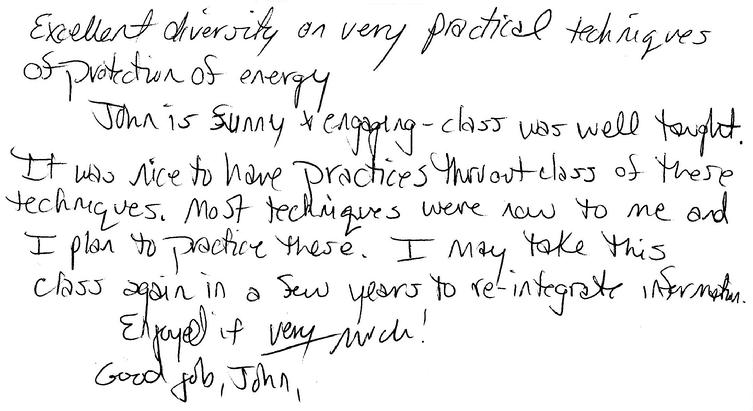 Excellent diversity on very practical techniques
of protection of energy
John is sunny & engaging - class was well taught.
It was nice to have practices thruout class of these
techniques. Most techniques were new to me and
I plan to practice these. I may take this
class again in a few years to re-integrate information.
Enjoyed it very much!
Good job, John,